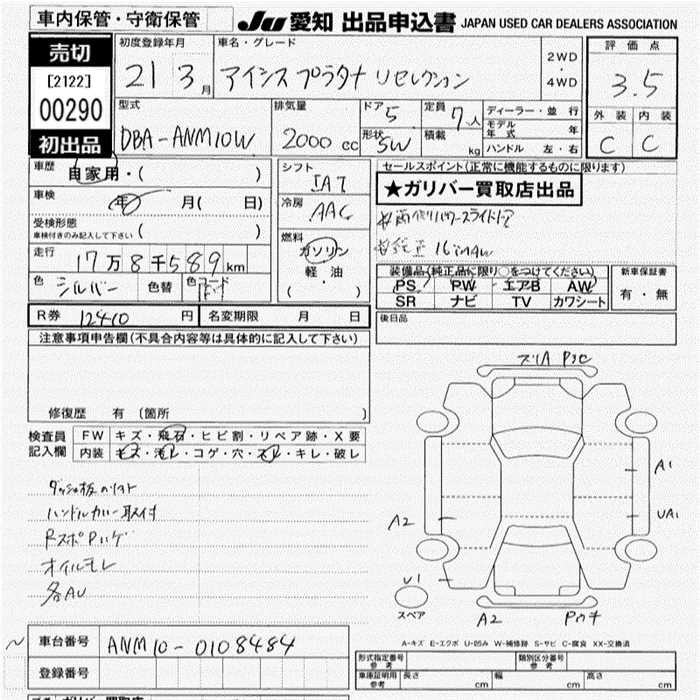 車内保管・守衛保管
JU 愛知 出品申込書 JAPAN USED CAR DEALERS ASSOCIATION
売切
[2122]
00290
初出品
初度登録年月
21 3月
車名・グレード
アイシス プラタナ リセレクション
2WD
・
4WD
評価点
3.5
外装 内装
C C
型式
DBA-ANM10W
排気量
2000 cc
ドア 5
形状 SW
定員 7人
積載 kg
ディーラー・並行
モデル年式 年
ハンドル 左・右
車歴
自家用・( )
車検
年 月( 日)
受検形態
車検付きのみ記入して下さい ( )
走行
17万8千589km
色 シルバー 色替 色コード
シフト
IAT
冷房
AAC
燃料
ガソリン
軽・油
( ・ )
セールスポイント(正常に機能するものに限ります)
★ガリバー買取店出品
純正16inAW
装備品(純正品に限り○をつけてください)
PS PW エアB AW
SR ナビ TV カワシート
新車保証書
有・無
R券 12410 円 名変期限 月 日
後日品
注意事項申告欄(不具合内容等は具体的に記入して下さい)
修復歴 有 (箇所 )
検査員
記入欄
FW キズ・飛石・ヒビ割・リペア跡・X要
内装 キズ・汚レ・コゲ・穴・スレ・キレ・破レ
ハンドルカバー取付
オイルモレ
各AU
A1
UA1
A2
U1
スペア
A2
A-キズ E-エクボ U-凹み W-補修跡 S-サビ C-腐食 XX-交換済
車台番号 ANM10-0108484
登録番号
形式指定番号 参考
類別区分番号 参考
車庫証明用 参考 長さ cm 幅 cm 高さ cm